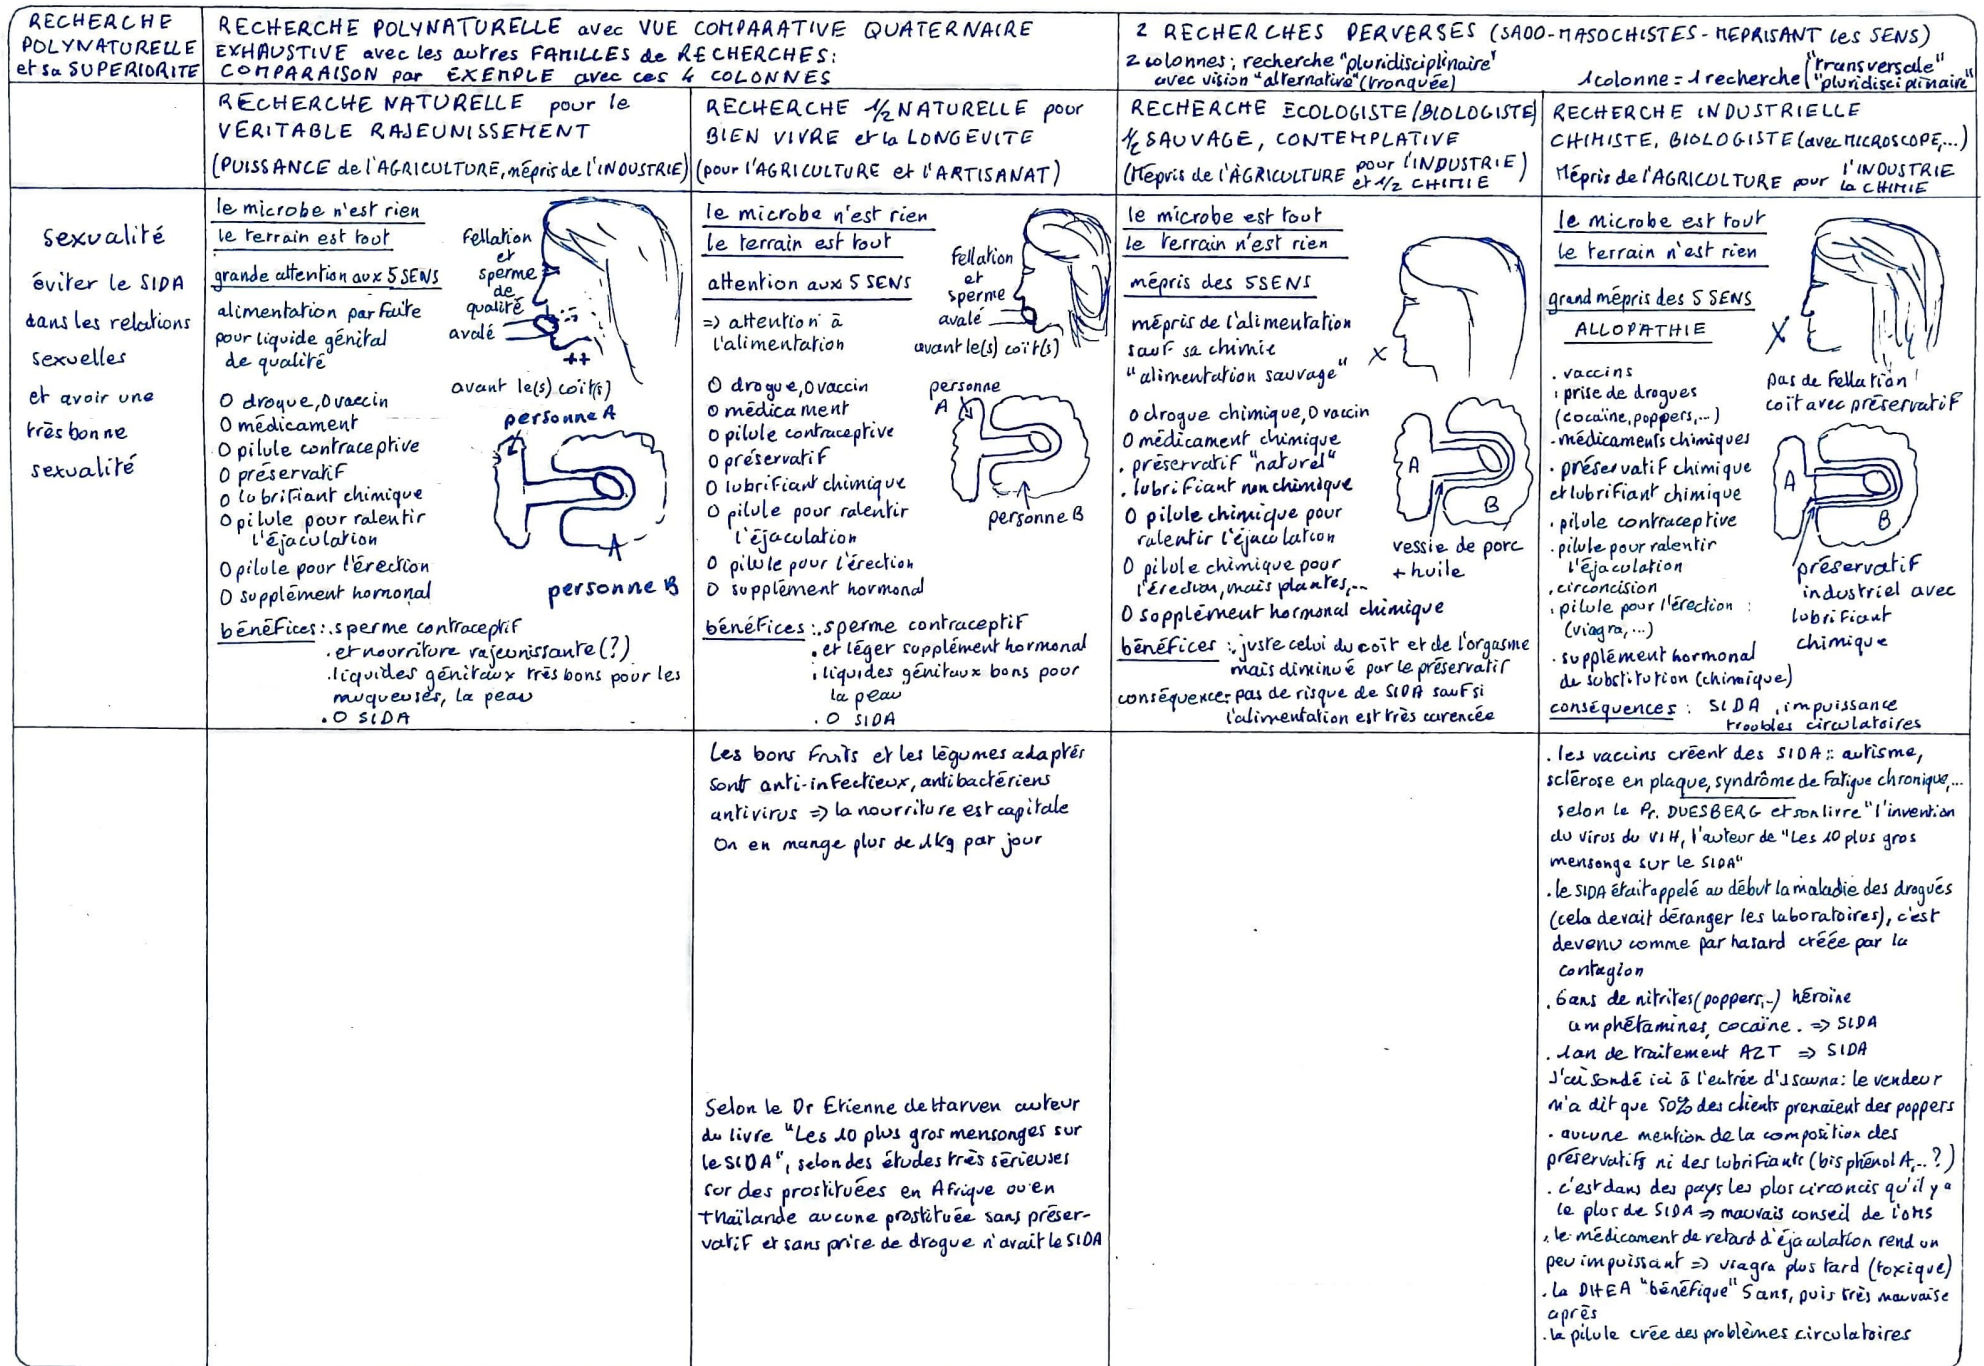 RECHERCHE
POLYNATURELLE
et sa SUPERIORITE
RECHERCHE POLYNATURELLE avec VUE COMPARATIVE QUATERNAIRE
EXHAUSTIVE avec les autres FAMILLES de RECHERCHES:
COMPARAISON par EXEMPLE avec ces 4 COLONNES
2 RECHERCHES PERVERSES (SADO-MASOCHISTES-MEPRISANT les SENS)
2 colonnes: recherche "pluridisciplinaire"
avec vision "alternative" (tronquée)
1 colonne = 1 recherche ("transversale"
"pluridisciplinaire"
RECHERCHE NATURELLE pour le
VERITABLE RAJEUNISSEMENT
(PUISSANCE de l'AGRICULTURE, mépris de l'INDUSTRIE)
RECHERCHE 1/2 NATURELLE pour
BIEN VIVRE et la LONGEVITE
(pour l'AGRICULTURE et l'ARTISANAT)
RECHERCHE ECOLOGISTE/BIOLOGISTE/
1/2 SAUVAGE, CONTEMPLATIVE
(Mépris de l'AGRICULTURE pour l'INDUSTRIE)
et 1/2 CHIMIE
RECHERCHE INDUSTRIELLE
CHIMISTE, BIOLOGISTE (avec MICROSCOPE,...)
Mépris de l'AGRICULTURE pour l'INDUSTRIE
la CHIMIE
sexualité
éviter le SIDA
dans les relations
sexuelles
et avoir une
très bonne
sexualité
le microbe n'est rien
le terrain est tout
grande attention aux 5 SENS
alimentation parfaite
pour liquide génital
de qualité
0 drogue, 0 vaccin
0 médicament
0 pilule contraceptive
0 préservatif
0 lubrifiant chimique
0 pilule pour ralentir
l'éjaculation
0 pilule pour l'érection
0 supplément hormonal
fellation
et
sperme
de
qualité
avalé
++
avant le(s) coït(s)
personne A
A
personne B
bénéfices: . sperme contraceptif
. et nourriture rajeunissante (?)
. liquides génitaux très bons pour les
muqueuses, la peau
. 0 SIDA
le microbe n'est rien
le terrain est tout
attention aux 5 SENS
=> attention à
l'alimentation
0 drogue, 0 vaccin
0 médicament
0 pilule contraceptive
0 préservatif
0 lubrifiant chimique
0 pilule pour ralentir
l'éjaculation
0 pilule pour l'érection
0 supplément hormonal
fellation
et
sperme
avalé
avant le(s) coït(s)
personne
A
personne B
bénéfices: . sperme contraceptif
. et léger supplément hormonal
. liquides génitaux bons pour
la peau
. 0 SIDA
le microbe est tout
le terrain n'est rien
mépris des 5 SENS
mépris de l'alimentation
sauf sa chimie
"alimentation sauvage"
0 drogue chimique, 0 vaccin
0 médicament chimique
. préservatif "naturel"
. lubrifiant non chimique
0 pilule chimique pour
ralentir l'éjaculation
0 pilule chimique pour
l'érection, mais plantes,...
0 supplément hormonal chimique
X
A
B
vessie de porc
+ huile
bénéfices: juste celui du coït et de l'orgasme
mais diminué par le préservatif
conséquence: pas de risque de SIDA sauf si
l'alimentation est très carencée
le microbe est tout
le terrain n'est rien
grand mépris des 5 SENS
ALLOPATHIE
. vaccins
. prise de drogues
(cocaïne, poppers,...)
. médicaments chimiques
. préservatif chimique
et lubrifiant chimique
. pilule contraceptive
. pilule pour ralentir
l'éjaculation
. circoncision
. pilule pour l'érection :
(viagra,...)
. supplément hormonal
de substitution (chimique)
X
pas de fellation !
coït avec préservatif
A
B
préservatif
industriel avec
lubrifiant
chimique
conséquences : SIDA, impuissance
troubles circulatoires
Les bons fruits et les légumes adaptés
sont anti-infectieux, antibactériens
antivirus => la nourriture est capitale
On en mange plus de 1kg par jour
Selon le Dr Etienne de Harven auteur
du livre "Les 10 plus gros mensonges sur
le SIDA", selon des études très sérieuses
sur des prostituées en Afrique ou en
Thaïlande aucune prostituée sans préser-
vatif et sans prise de drogue n'avait le SIDA
. les vaccins créent des SIDA: autisme,
sclérose en plaque, syndrôme de fatigue chronique,...
selon le Pr. DUESBERG et son livre "l'invention
du virus du VIH, l'auteur de "Les 10 plus gros
mensonge sur le SIDA"
. le SIDA était appelé au début la maladie des drogués
(cela devait déranger les laboratoires), c'est
devenu comme par hasard créée par la
contagion
. 6 ans de nitrites (poppers,..) héroïne
amphétamines, cocaïne. => SIDA
. 1 an de traitement AZT => SIDA
J'ai sondé ici à l'entrée d'1 sauna: le vendeur
m'a dit que 50% des clients prenaient des poppers
. aucune mention de la composition des
préservatifs ni des lubrifiants (bisphénol A,..?)
. c'est dans des pays les plus circoncis qu'il y a
le plus de SIDA => mauvais conseil de l'OMS
. le médicament de retard d'éjaculation rend un
peu impuissant => viagra plus tard (toxique)
. la DHEA "bénéfique" 5 ans, puis très mauvaise
après
. la pilule crée des problèmes circulatoires